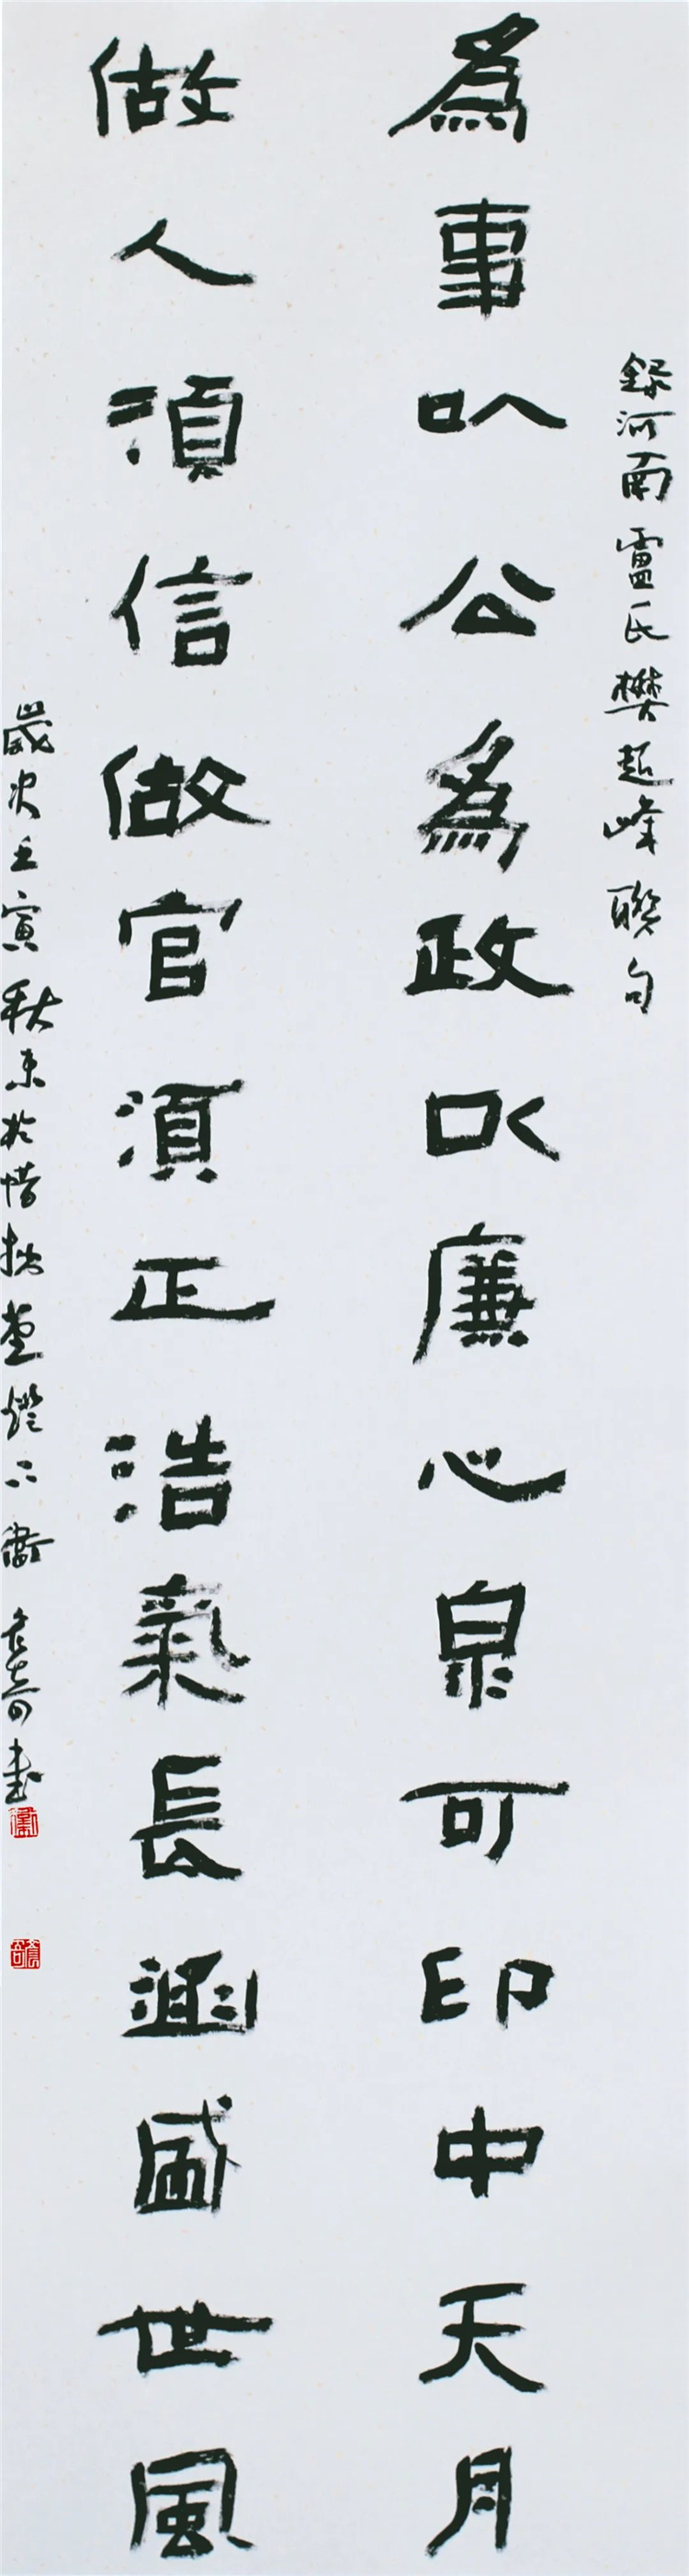 錄河南盧氏樊超峰聯句
為事以公為政以廉心泉可印中天月
做人須信做官須正浩氣長涵盛世風
歲次壬寅秋末於惜拙堂燈下衛 書